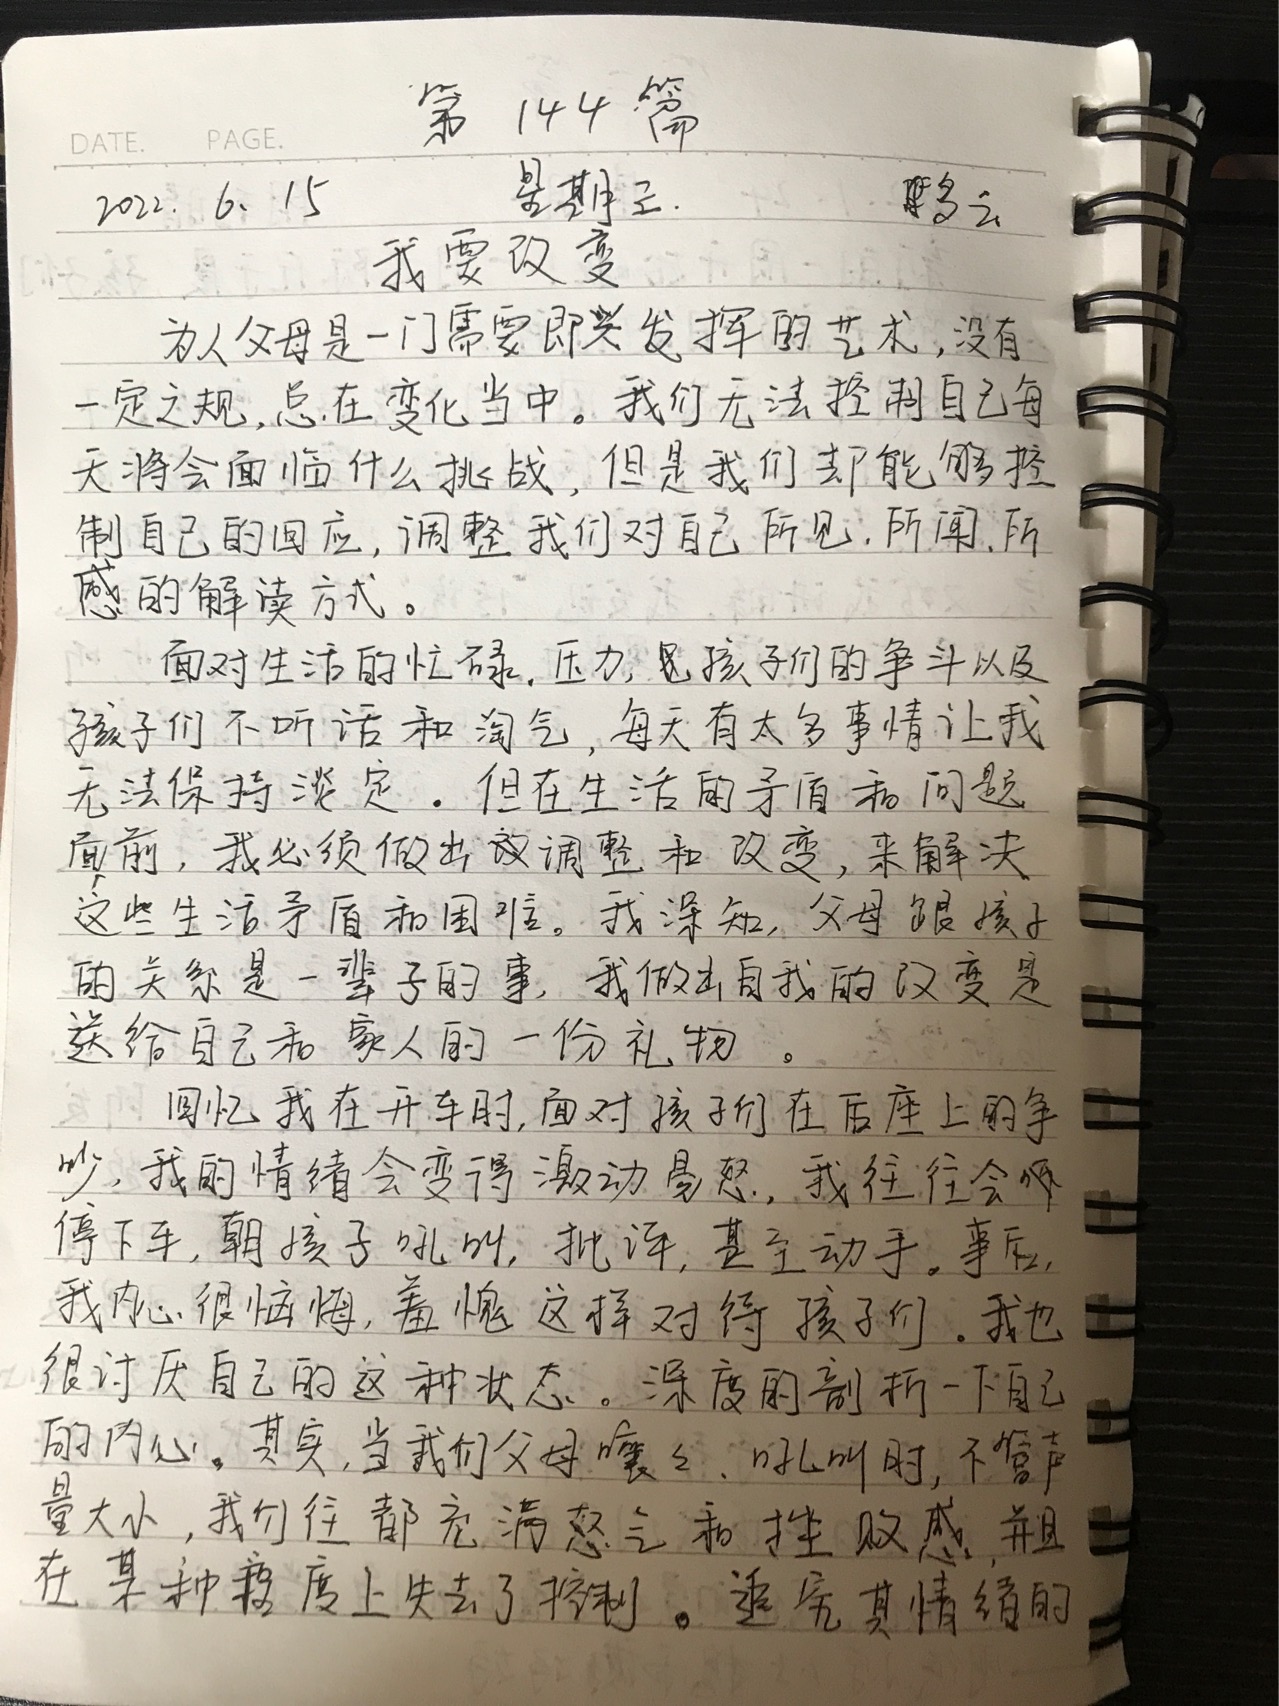 第144篇
DATE. PAGE.
2022.6.15 星期三. 多云
我要改变
为人父母是一门需要即兴发挥的艺术,没有
一定之规,总在变化当中。我们无法控制自己每
天将会面临什么挑战,但是我们却能够控
制自己的回应,调整我们对自己所见.所闻.所
感的解读方式。
面对生活的忙碌.压力,孩子们的争斗以及
孩子们不听话和淘气,每天有太多事情让我
无法保持淡定。但在生活的矛盾和问题
面前,我必须做出调整和改变,来解决
这些生活矛盾和困难。我深知,父母跟孩子
的关系是一辈子的事,我做出自我的改变是
送给自己和家人的一份礼物。
回忆我在开车时,面对孩子们在后座上的争
吵,我的情绪会变得激动易怒,我往往会
停下车,朝孩子吼叫,批评,甚至动手。事后,
我内心很恼悔,羞愧这样对待孩子们。我也
很讨厌自己的这种状态。深度的剖析一下自己
的内心。其实,当我们父母嚷嚷、吼叫时,不管声
量大小,我们往都充满怒气和挫败感,并且
在某种程度上失去了控制。追究其情绪的